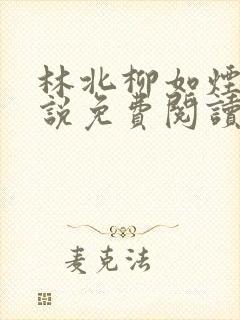 林北柳如煙
說免費閱讀
麦克法